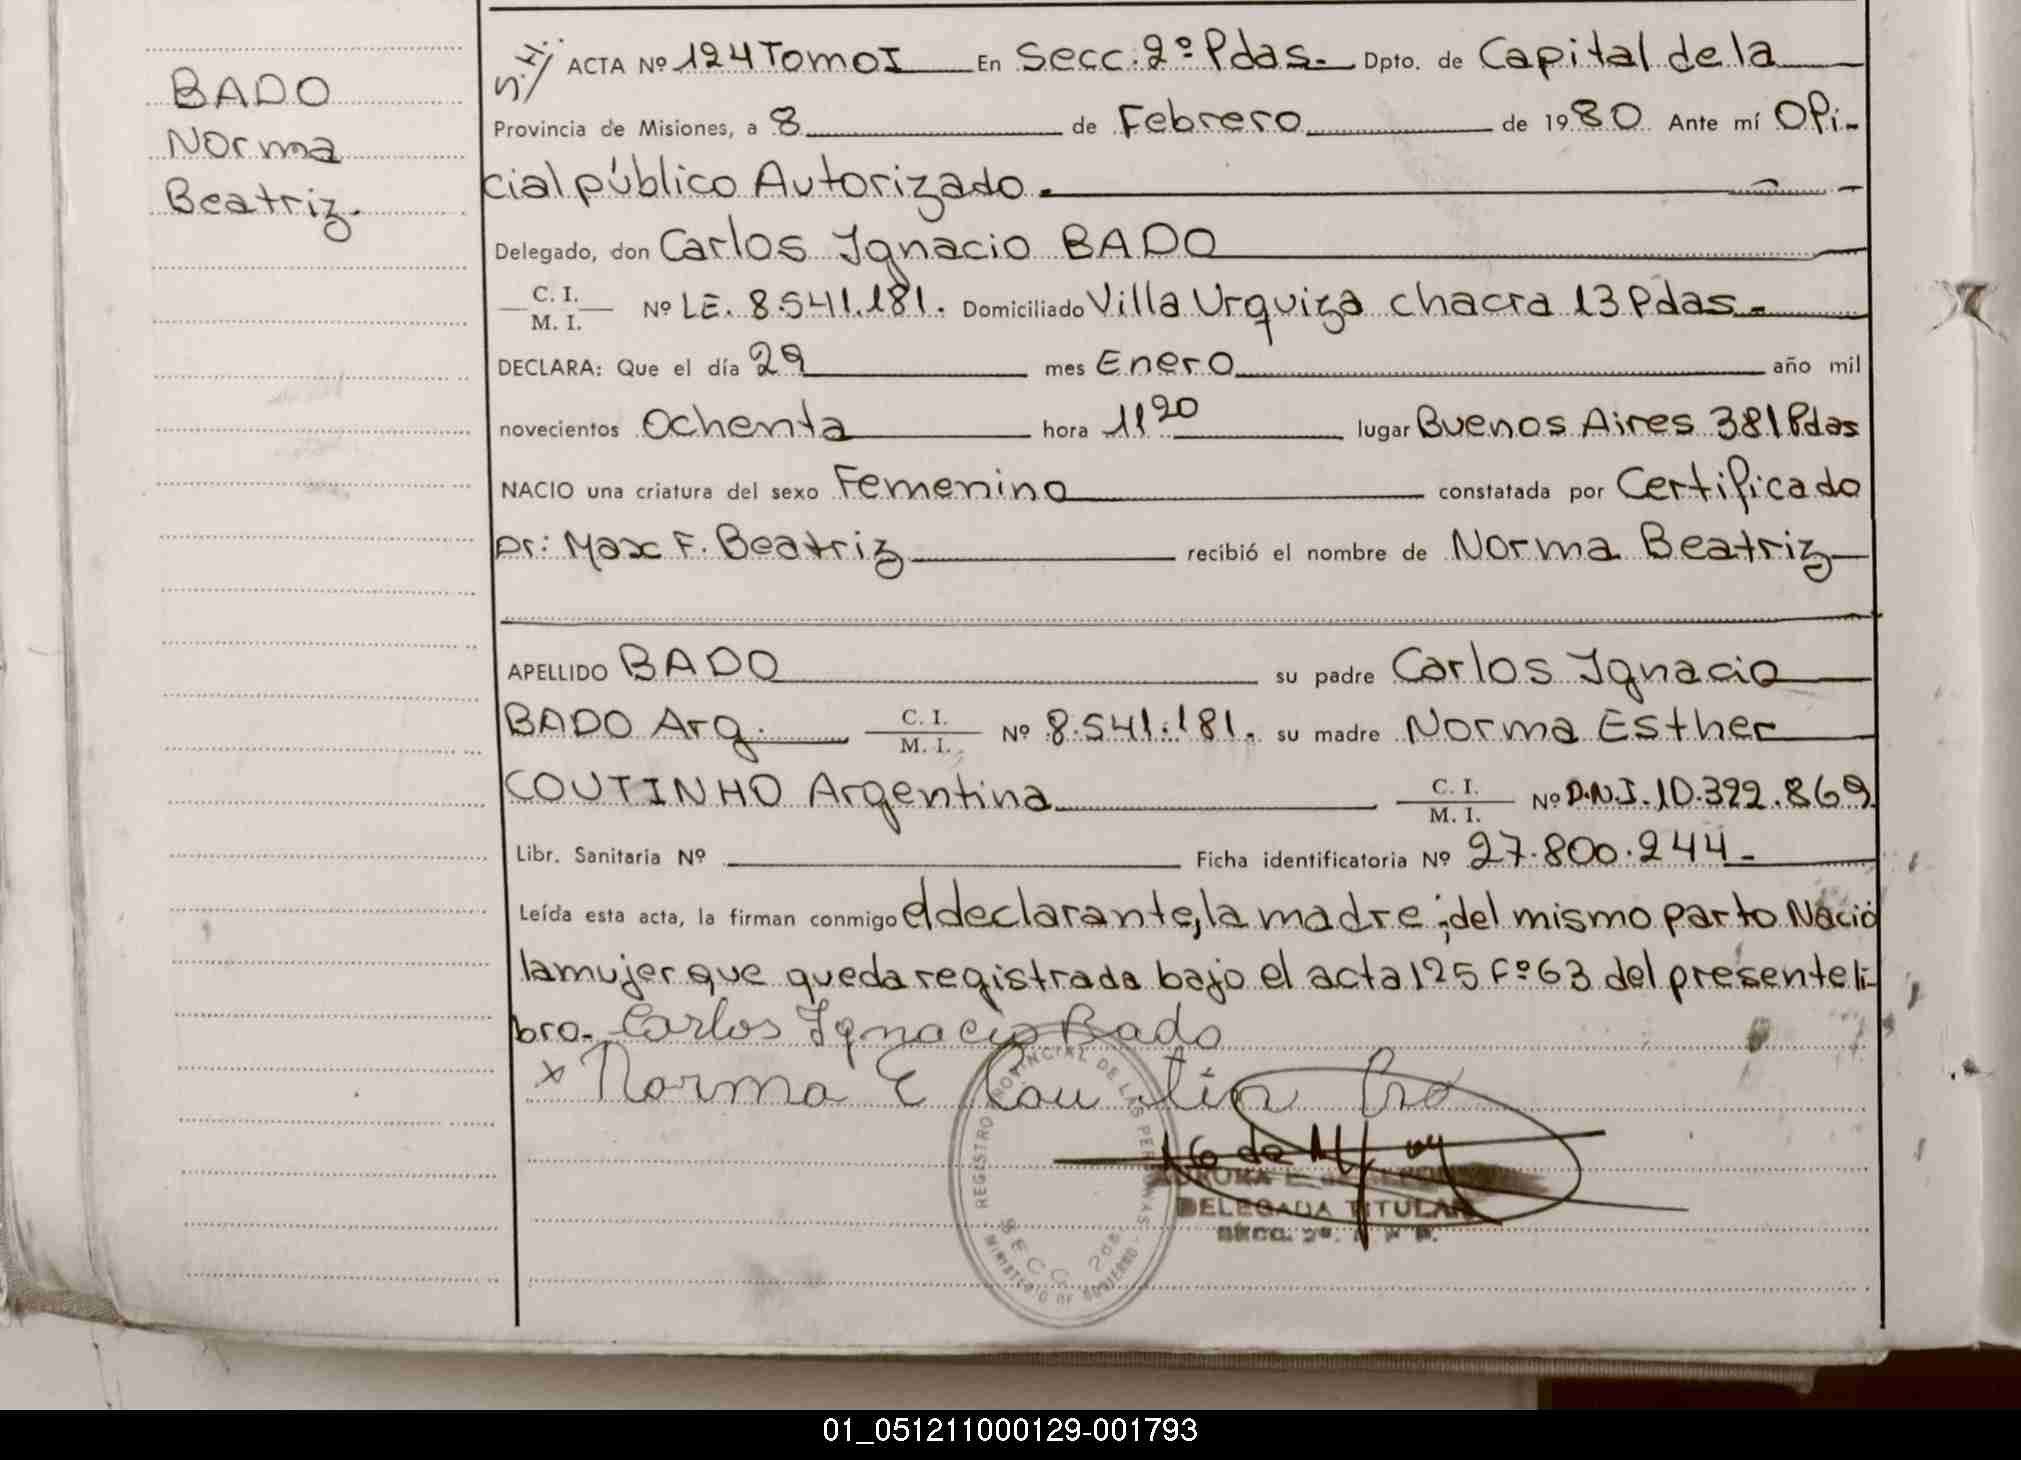 BADO
Norma
Beatriz.
S.H./ ACTA Nº 124 Tomo I En Secc. 2º Pdas. Dpto. de Capital de la
Provincia de Misiones, a 8 de Febrero de 1980 Ante mí Ofi-
cial público Autorizado.
Delegado, don Carlos Ignacio BADO
C. I.
M. I. Nº LE. 8.541.181. Domiciliado Villa Urquiza chacra 13 Pdas.
DECLARA: Que el día 29 mes Enero año mil
novecientos Ochenta hora 11 20 lugar Buenos Aires 381 Pdas
NACIO una criatura del sexo Femenino constatada por Certificado
Dr: Max F. Beatriz recibió el nombre de Norma Beatriz
APELLIDO BADO su padre Carlos Ignacio
BADO Arg. C. I. M. I. Nº 8.541.181. su madre Norma Esther
COUTINHO Argentina C. I. M. I. Nº D.N.I. 10.322.869
Libr. Sanitaria Nº Ficha identificatoria Nº 27.800.244
Leída esta acta, la firman conmigo el declarante, la madre; del mismo parto Nació
la mujer que queda registrada bajo el acta 125 Fº 63 del presente li-
bro. Carlos Ignacio Bado
x Norma E Coutin
REGISTRO PROVINCIAL DE LAS PERSONAS
SECC. 2da
MINISTERIO DE GOBIERNO
DELEGADA TITULAR
SECC. 2ª.
01_051211000129-001793